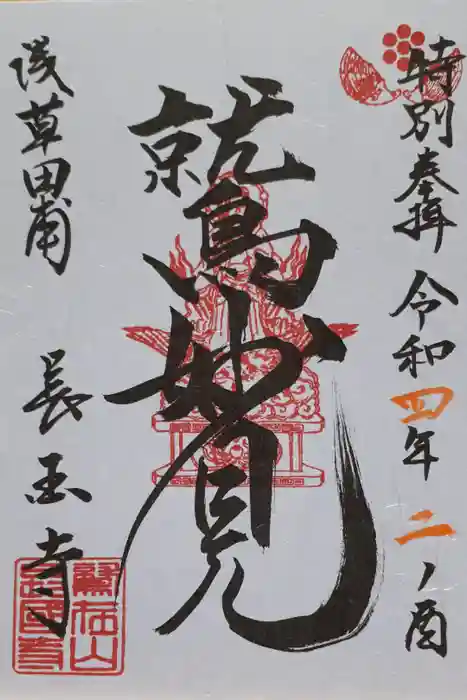 特別奉拝 令和四年二ノ酉
鷲妙見
浅草田甫 長国寺
鷲在山
長國寺